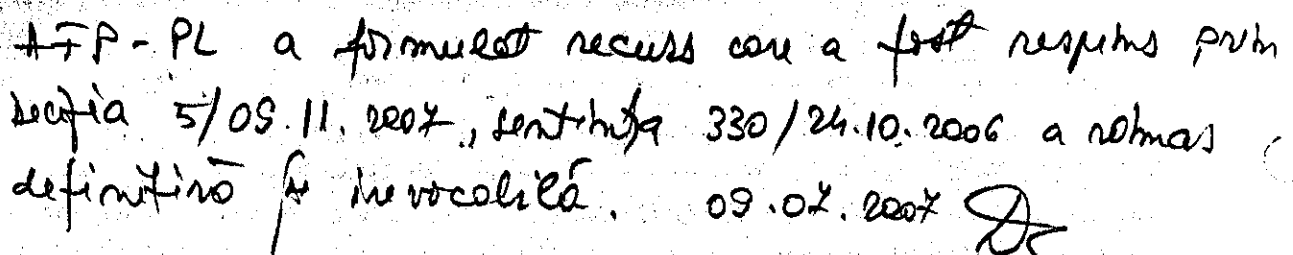 AFP-PL a formulat recurs care a fost respins prin
decizia 5/09.11.2007, sentința 330/24.10.2006 a rămas
definitivă și irevocabilă. 09.07.2007